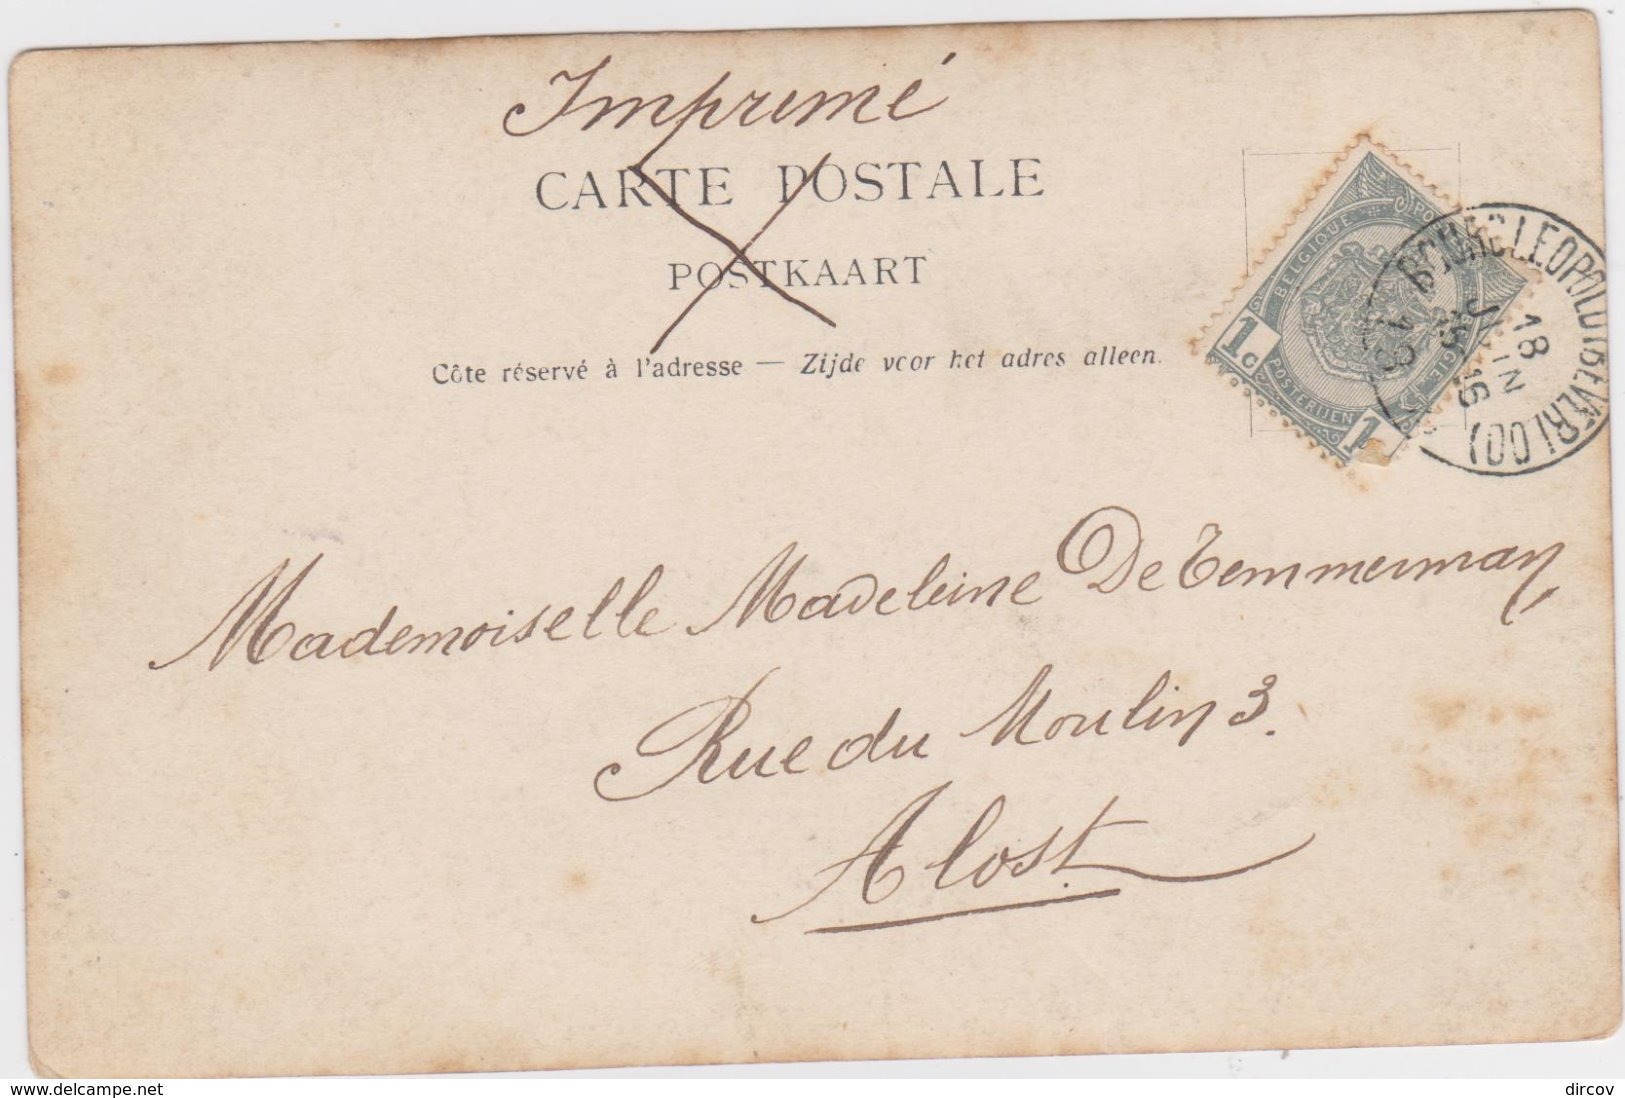 Imprimé
CARTE POSTALE
POSTKAART
Côte réservé à l'adresse — Zijde voor het adres alleen.
BELGIQUE
POSTERIJEN
1c
1
18
JUIN
16
Mademoiselle Madeleine De Temmerman,
Rue du Moulin 3.
Alost.
delcampe.net
dircov